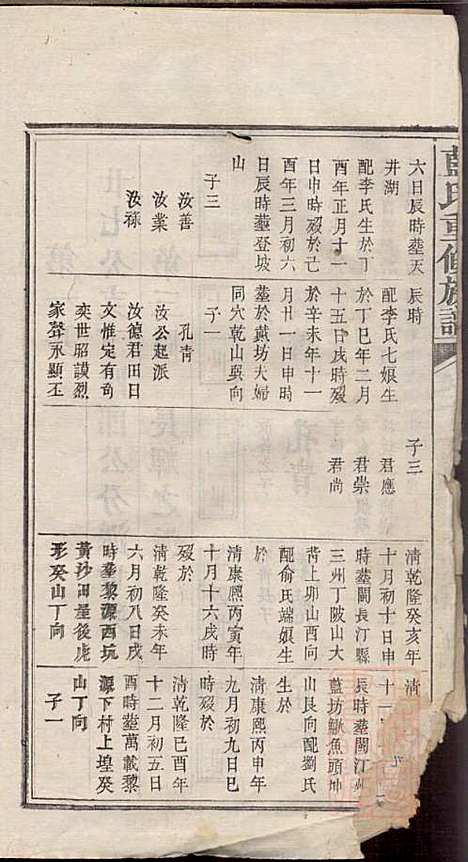 藍氏重修族譜
六日辰時塟天
井湖
配李氏生於丁
酉年正月十二
日申時歿於己
酉年三月初六
日辰時塟登坡
山
子三
汝善
汝業
汝祿
辰時
配李氏七娘生
於丁巳年二月
十五日戌時歿
於辛未年十一
月廿一日申時
塟於黃坊夫婦
同穴乾山巽向
子一
孔靑
汝公起派
汝德君田日
文惟定有奇
奕世昭謨烈
家聲永顯丕
子三
君應
君崇
君尚
清乾隆癸亥年
十月初十日申
時塟閩長汀縣
三州丁陂山大
背上卯山酉向
配俞氏端娘生
於
清康熙丙寅年
十月十六戌時
歿於
清乾隆癸未年
六月初八日戌
時塟黎源西坑
黃沙田屋後虎
形癸山丁向
清
十一
長時塟閩汀州
藍坊鰍魚頭坤
山艮向配劉氏
生於
清康熙丙申年
九月初九日巳
時歿於
清乾隆己酉年
十二月初五日
酉時塟萬載黎
源下村上堭癸
山丁向
子一